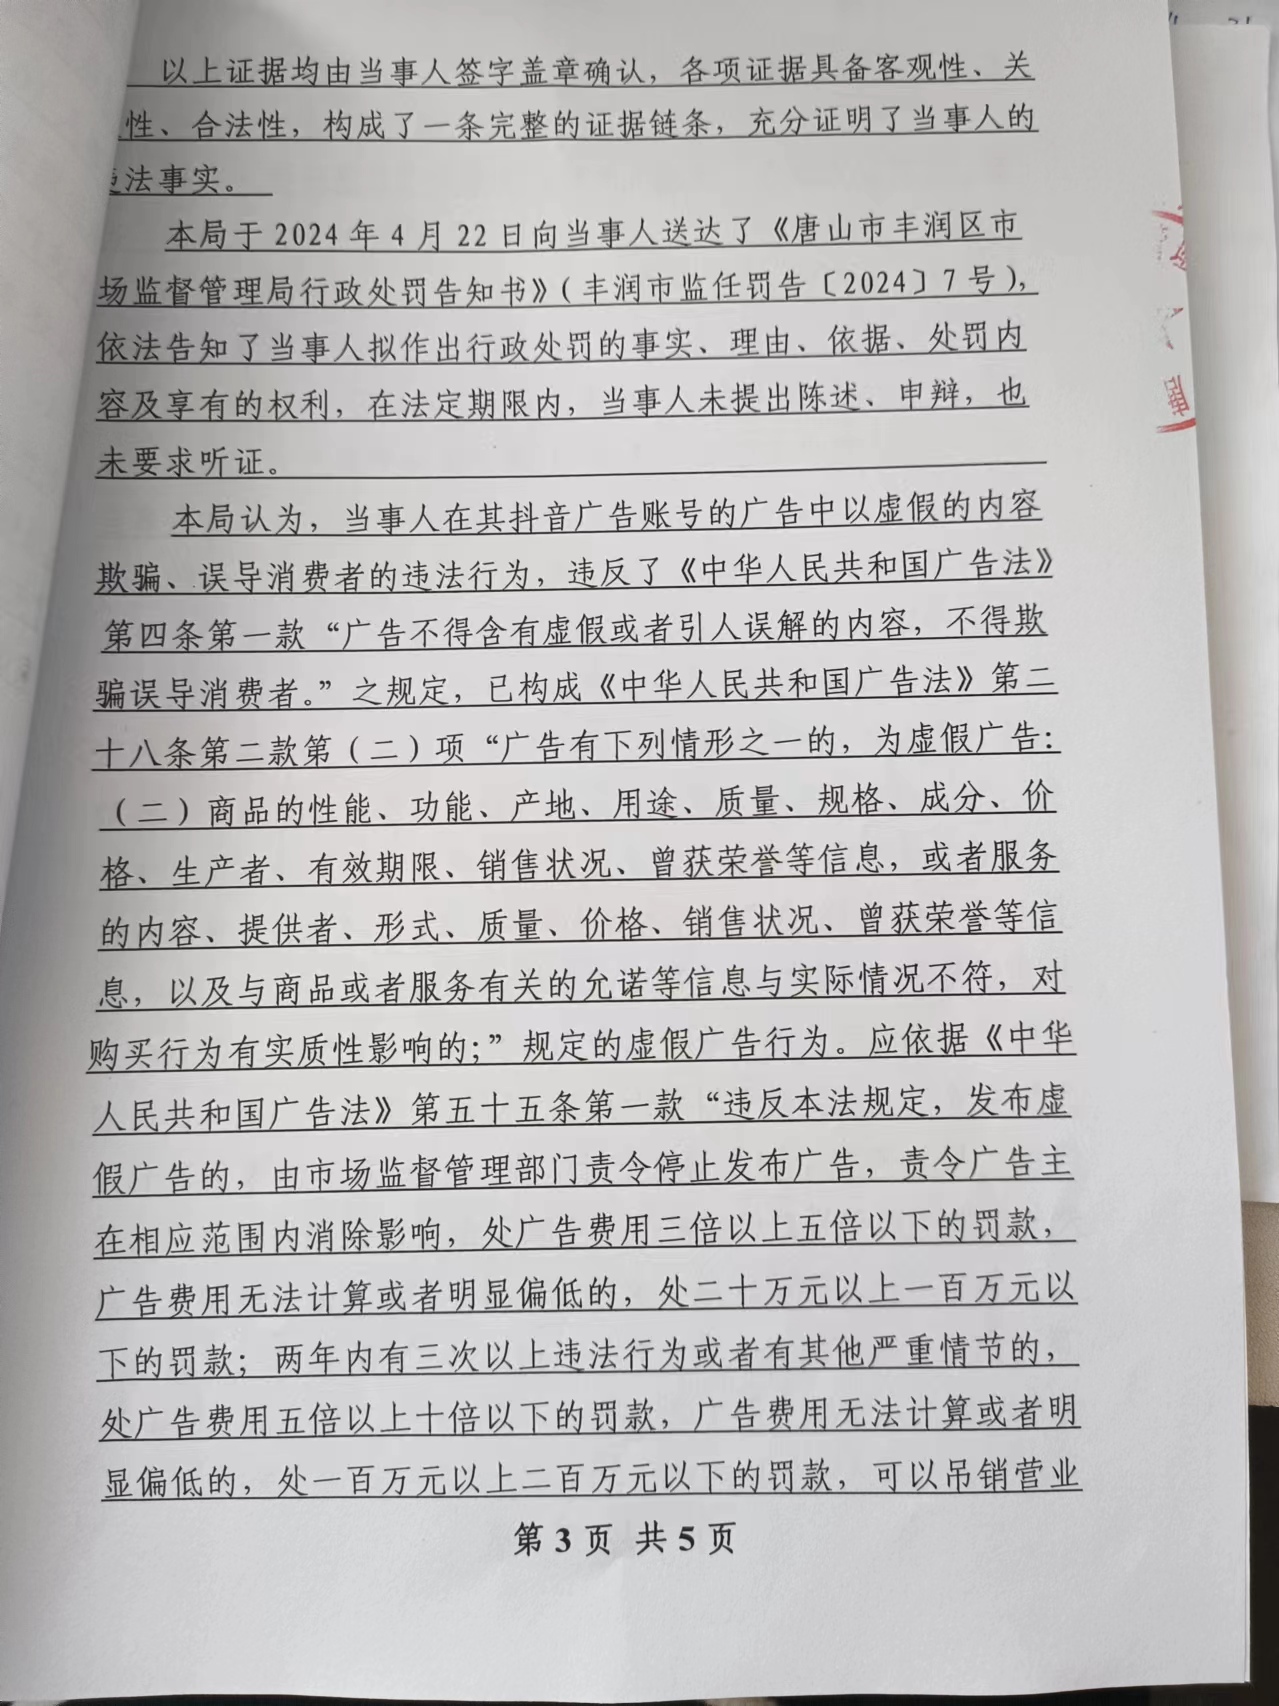 以上证据均由当事人签字盖章确认，各项证据具备客观性、关
性、合法性，构成了一条完整的证据链条，充分证明了当事人的
违法事实。
本局于 2024 年 4 月 22 日向当事人送达了《唐山市丰润区市
场监督管理局行政处罚告知书》（丰润市监任罚告〔2024〕7 号），
依法告知了当事人拟作出行政处罚的事实、理由、依据、处罚内
容及享有的权利，在法定期限内，当事人未提出陈述、申辩，也
未要求听证。
本局认为，当事人在其抖音广告账号的广告中以虚假的内容
欺骗、误导消费者的违法行为，违反了《中华人民共和国广告法》
第四条第一款“广告不得含有虚假或者引人误解的内容，不得欺
骗误导消费者。”之规定，已构成《中华人民共和国广告法》第二
十八条第二款第（二）项“广告有下列情形之一的，为虚假广告：
（二）商品的性能、功能、产地、用途、质量、规格、成分、价
格、生产者、有效期限、销售状况、曾获荣誉等信息，或者服务
的内容、提供者、形式、质量、价格、销售状况、曾获荣誉等信
息，以及与商品或者服务有关的允诺等信息与实际情况不符，对
购买行为有实质性影响的；”规定的虚假广告行为。应依据《中华
人民共和国广告法》第五十五条第一款“违反本法规定，发布虚
假广告的，由市场监督管理部门责令停止发布广告，责令广告主
在相应范围内消除影响，处广告费用三倍以上五倍以下的罚款，
广告费用无法计算或者明显偏低的，处二十万元以上一百万元以
下的罚款；两年内有三次以上违法行为或者有其他严重情节的，
处广告费用五倍以上十倍以下的罚款，广告费用无法计算或者明
显偏低的，处一百万元以上二百万元以下的罚款，可以吊销营业
第 3 页 共 5 页